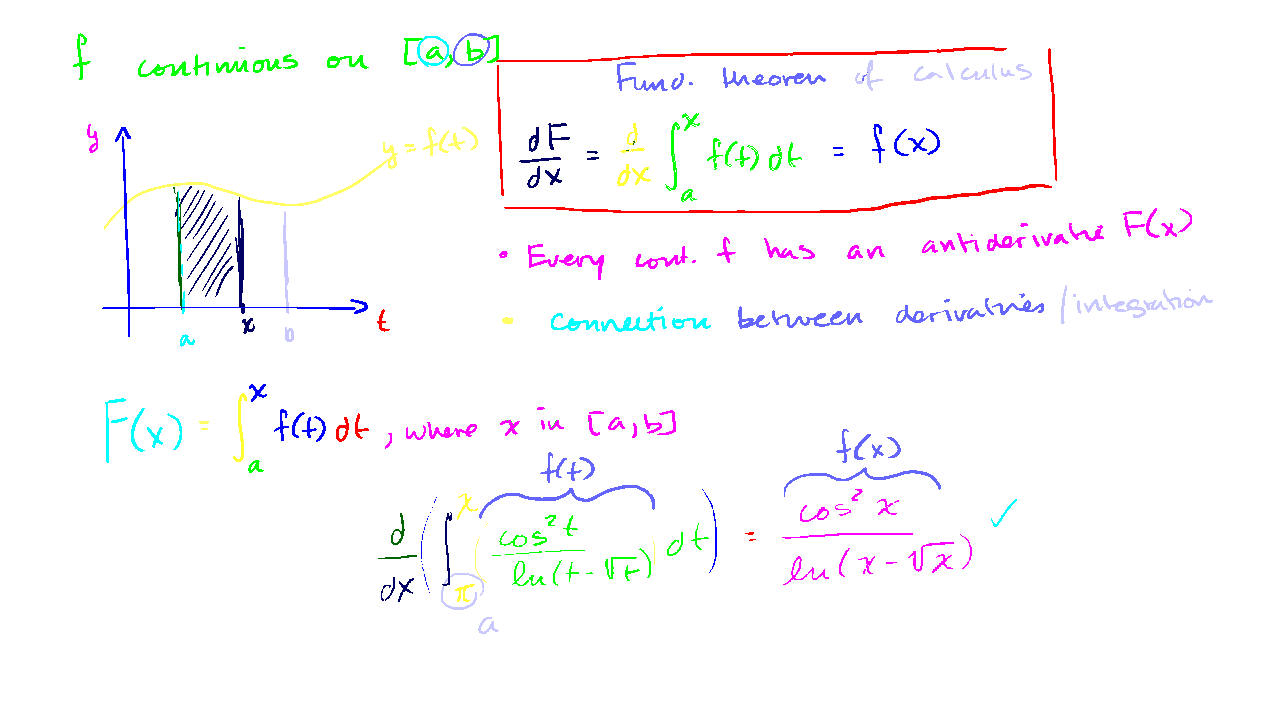 f continuous on [a, b]
Fund. theorem of calculus
dF/dx = d/dx ∫_a^x f(t) dt = f(x)
y
y = f(t)
a
x
b
t
• Every cont. f has an antiderivative F(x)
• Connection between derivatives / integration
F(x) = ∫_a^x f(t) dt, where x in [a, b]
f(t)
f(x)
d/dx (∫_π^x cos² t / ln(t - √t) dt) = cos² x / ln(x - √x) ✓
a